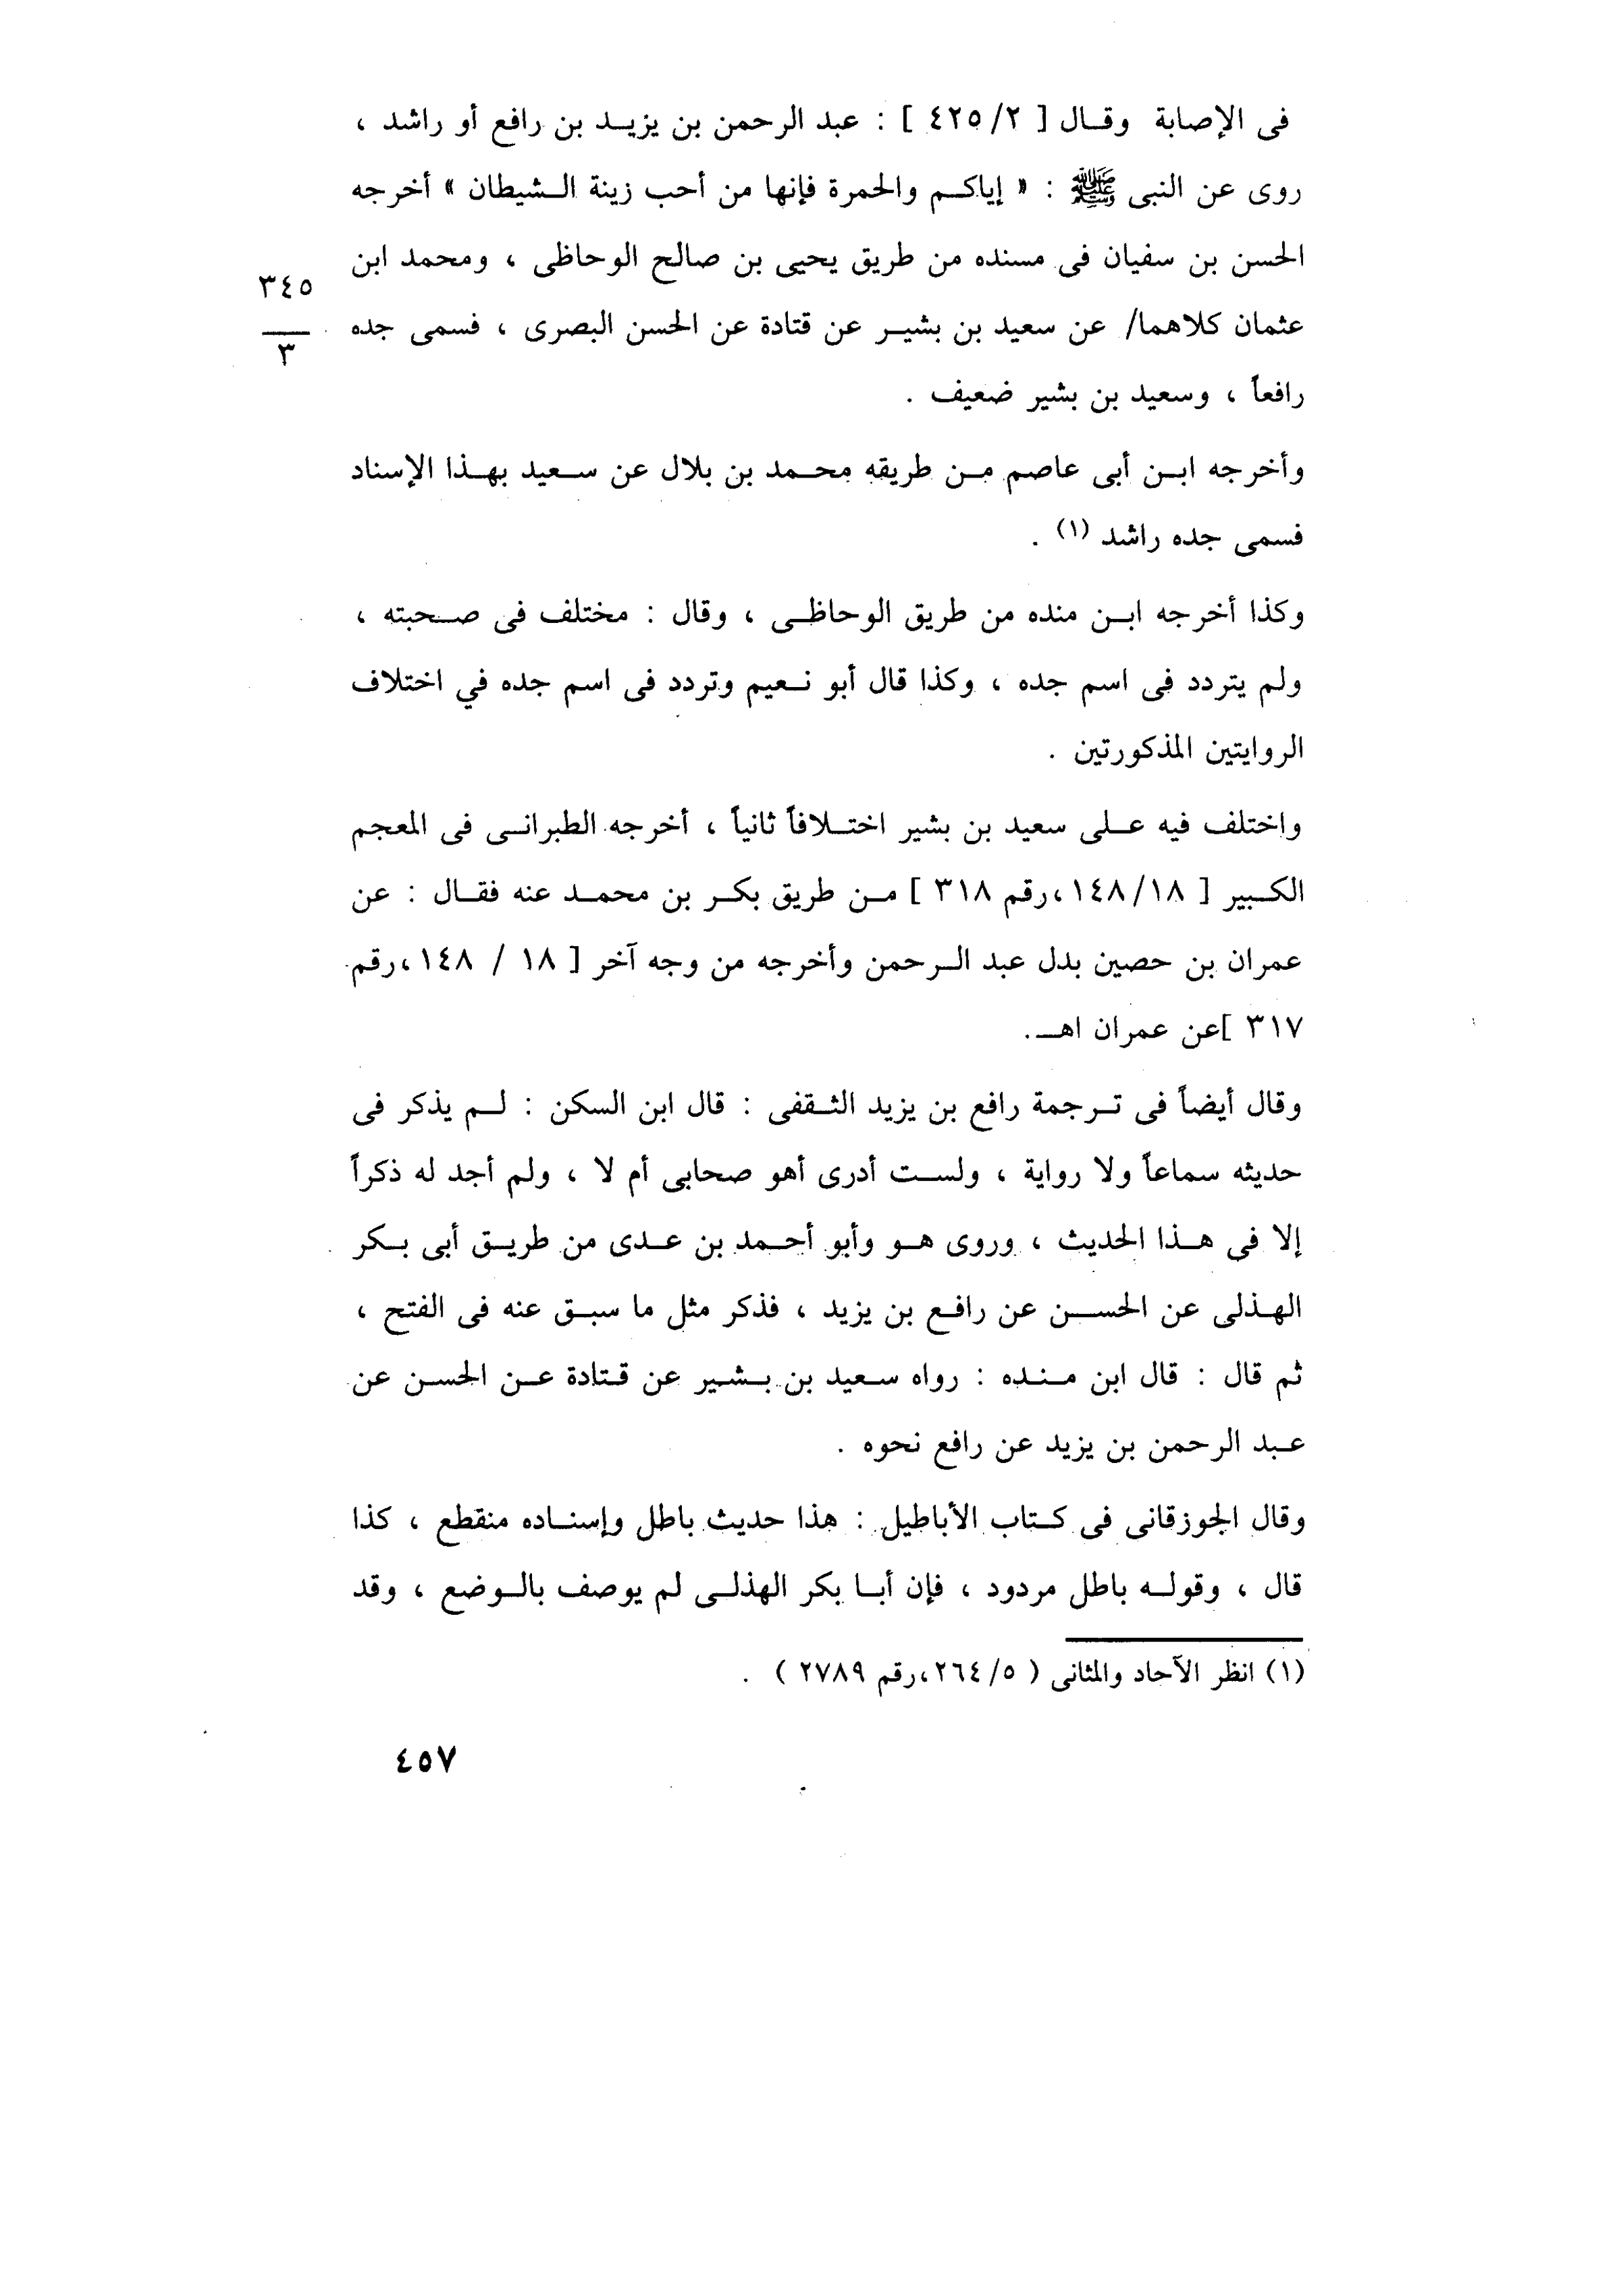 فى الإصابة وقال [ ٤٢٥/٢ ] : عبد الرحمن بن يزيد بن رافع أو راشد ،
روى عن النبى ﷺ : « إياكم والحمرة فإنها من أحب زينة الشيطان » أخرجه
الحسن بن سفيان فى مسنده من طريق يحيى بن صالح الوحاظى ، ومحمد ابن
٣٤٥
عثمان كلاهما/ عن سعيد بن بشير عن قتادة عن الحسن البصرى ، فسمى جده
٣
رافعاً ، وسعيد بن بشير ضعيف .
وأخرجه ابن أبى عاصم من طريقه محمد بن بلال عن سعيد بهذا الإسناد
فسمى جده راشد (١) .
وكذا أخرجه ابن منده من طريق الوحاظى ، وقال : مختلف فى صحبته ،
ولم يتردد فى اسم جده ، وكذا قال أبو نعيم وتردد فى اسم جده في اختلاف
الروايتين المذكورتين .
واختلف فيه على سعيد بن بشير اختلافاً ثانياً ، أخرجه الطبرانى فى المعجم
الكبير [ ١٤٨/١٨ ،رقم ٣١٨ ] من طريق بكر بن محمد عنه فقال : عن
عمران بن حصين بدل عبد الرحمن وأخرجه من وجه آخر [ ١٨ / ١٤٨ ،رقم
٣١٧ ]عن عمران اهـ.
وقال أيضاً فى ترجمة رافع بن يزيد الثقفى : قال ابن السكن : لم يذكر فى
حديثه سماعاً ولا رواية ، ولست أدرى أهو صحابى أم لا ، ولم أجد له ذكراً
إلا فى هذا الحديث ، وروى هو وأبو أحمد بن عدى من طريق أبى بكر
الهذلى عن الحسن عن رافع بن يزيد ، فذكر مثل ما سبق عنه فى الفتح ،
ثم قال : قال ابن منده : رواه سعيد بن بشير عن قتادة عن الحسن عن
عبد الرحمن بن يزيد عن رافع نحوه .
وقال الجوزقانى فى كتاب الأباطيل : هذا حديث باطل وإسناده منقطع ، كذا
قال ، وقوله باطل مردود ، فإن أبا بكر الهذلى لم يوصف بالوضع ، وقد
(١) انظر الآحاد والمثانى ( ٢٦٤/٥ ،رقم ٢٧٨٩ ) .
٤٥٧